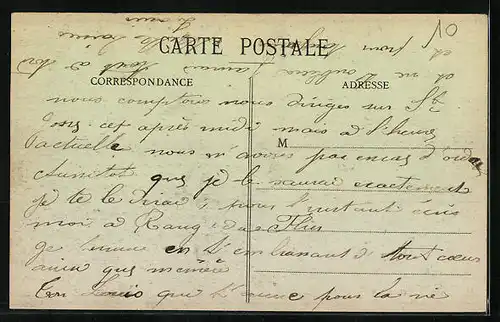 10
CARTE POSTALE
CORRESPONDANCE
ADRESSE
M
nous comptons nous diriger sur St
cet après midi mais a l'heure
actuelle nous n'avons pas encor d'ordre
aussitot que je le saurai exactement
je te le dirai; pour l'instant écris
moi a Rang du Flier
Je termine en t'embrassant de tout cœur
ainsi que mémère
Ton Louis que t'aime pour la vie